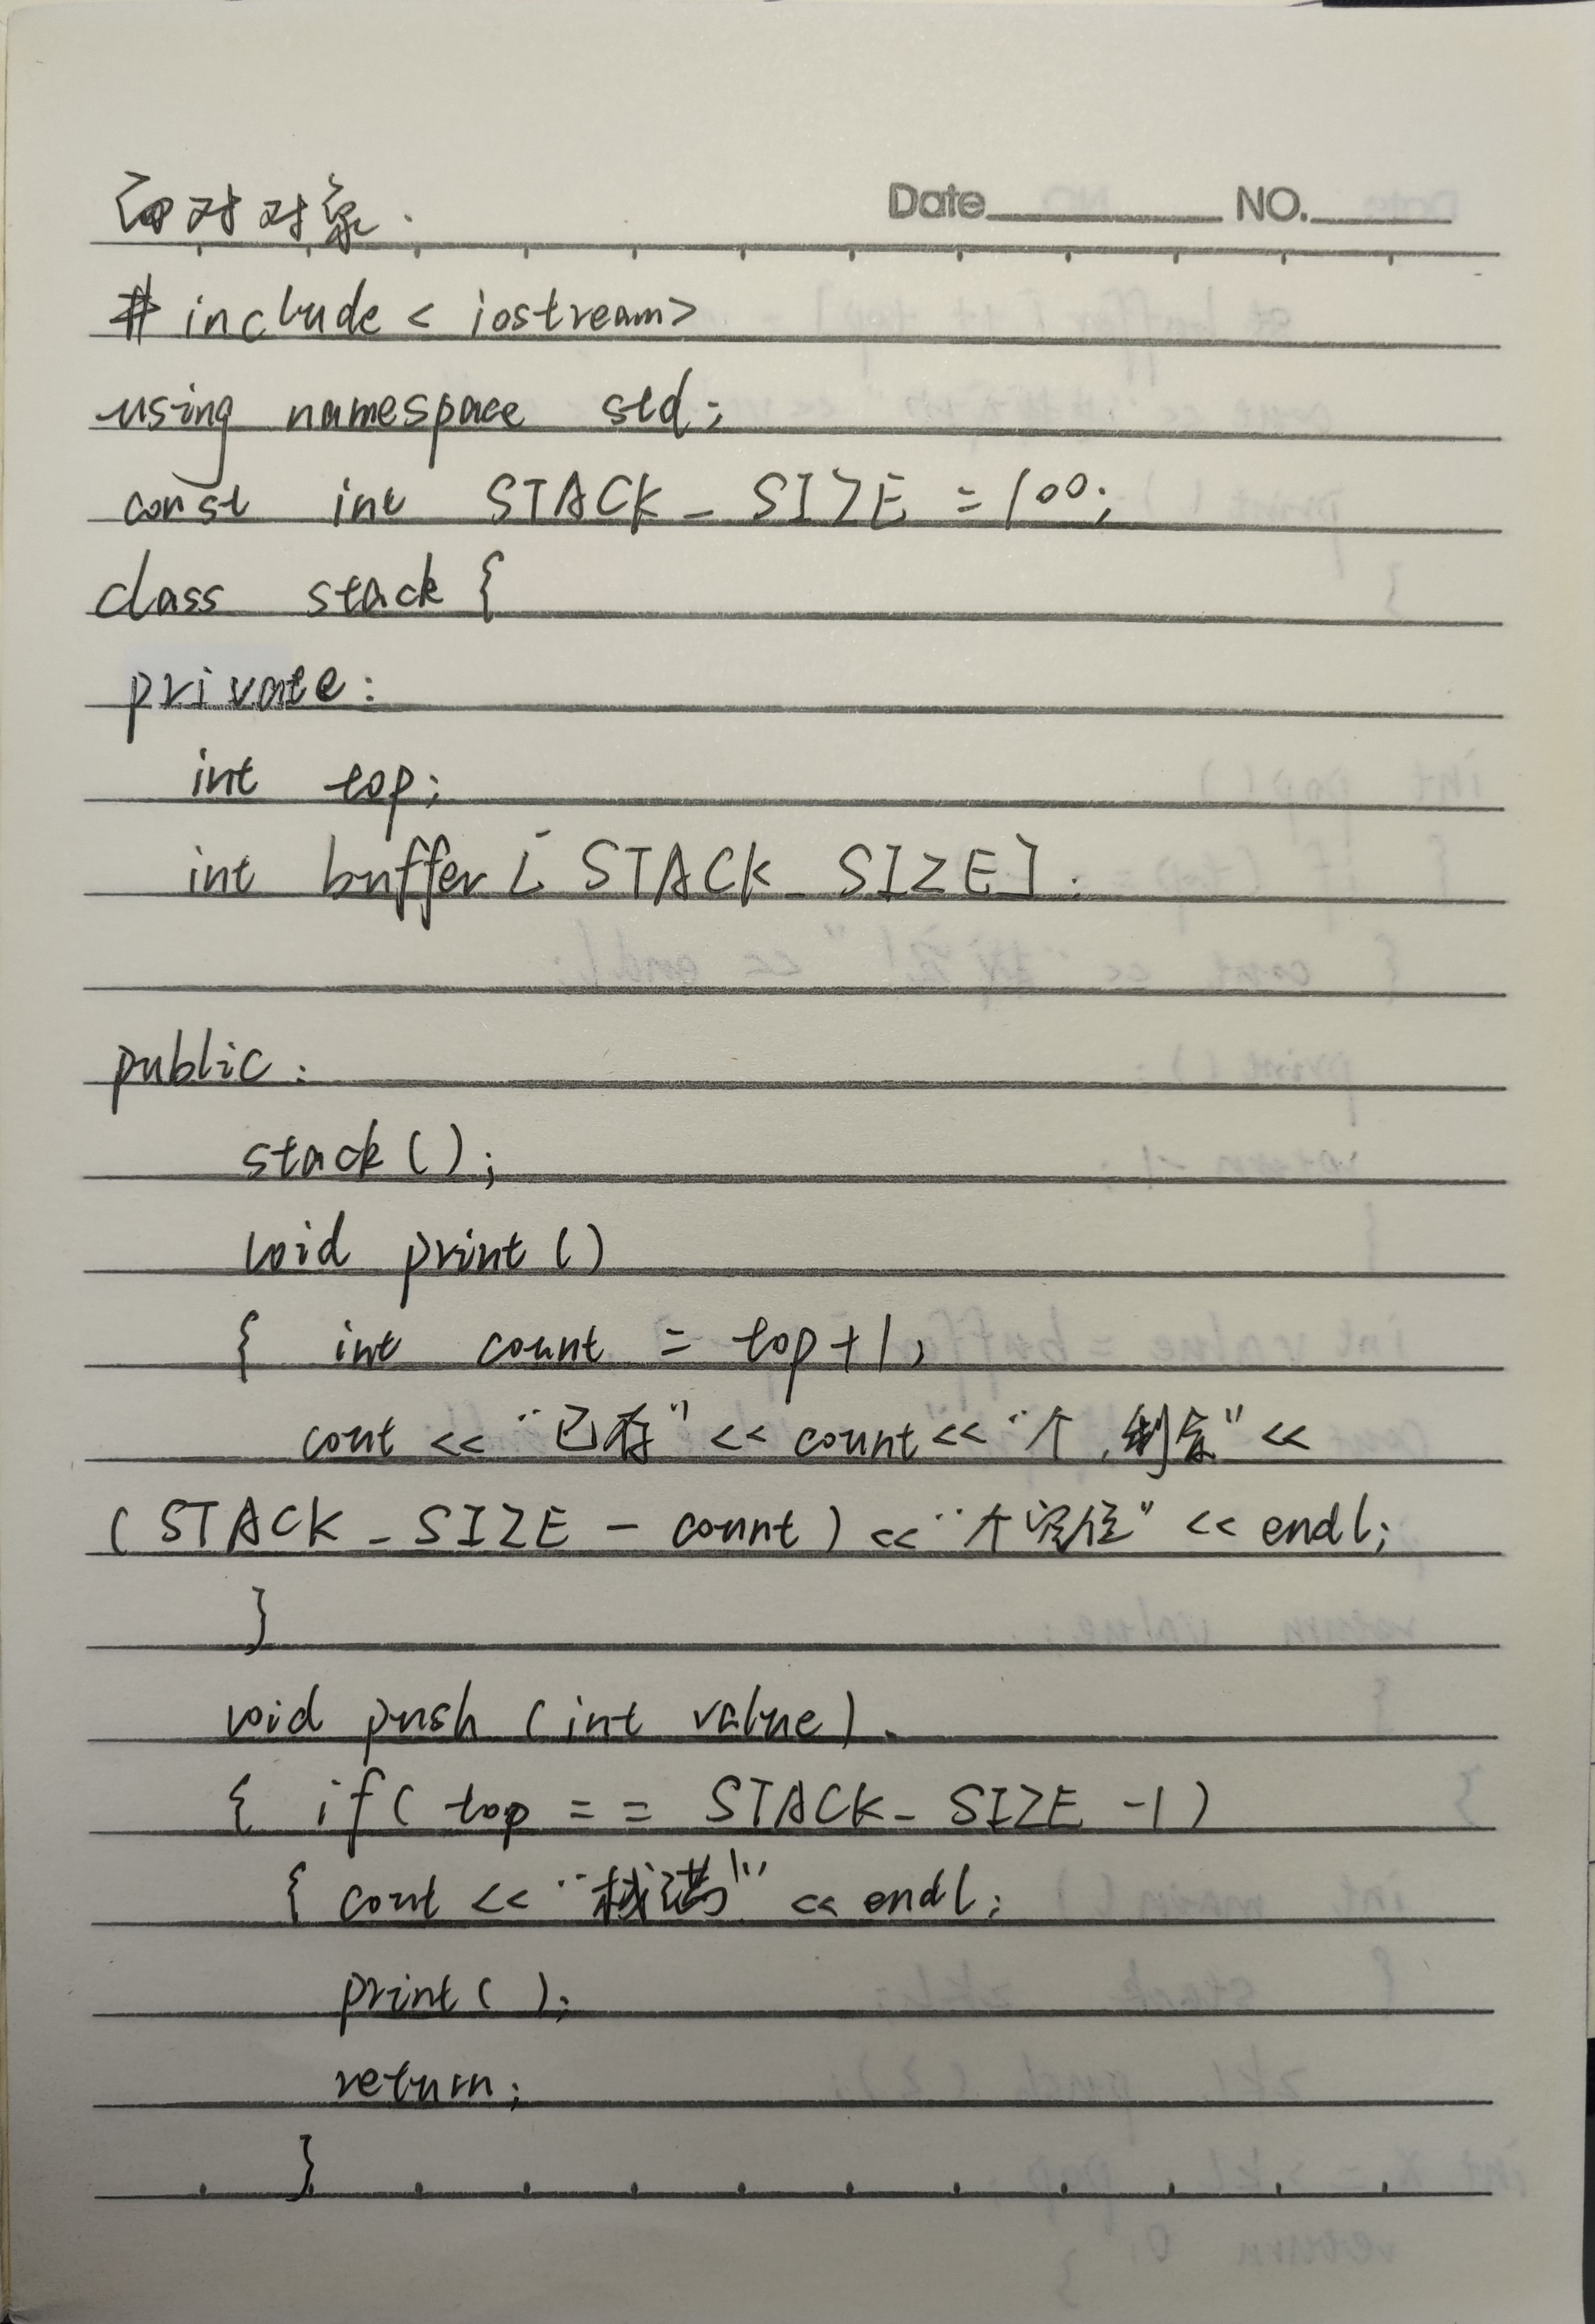 面对对象.
Date NO.
# include < iostream>
using namespace std;
const int STACK_SIZE =100;
class stack {
private:
int top;
int buffer [ STACK_SIZE];
public:
stack ();
void print ()
{ int count = top+1;
cout << "已存" << count << "个,剩余" <<
(STACK_SIZE - count) << "个空位" << endl;
}
void push (int value)
{ if( top == STACK_SIZE -1)
{ cout << "栈满!" << endl;
print( );
return;
}